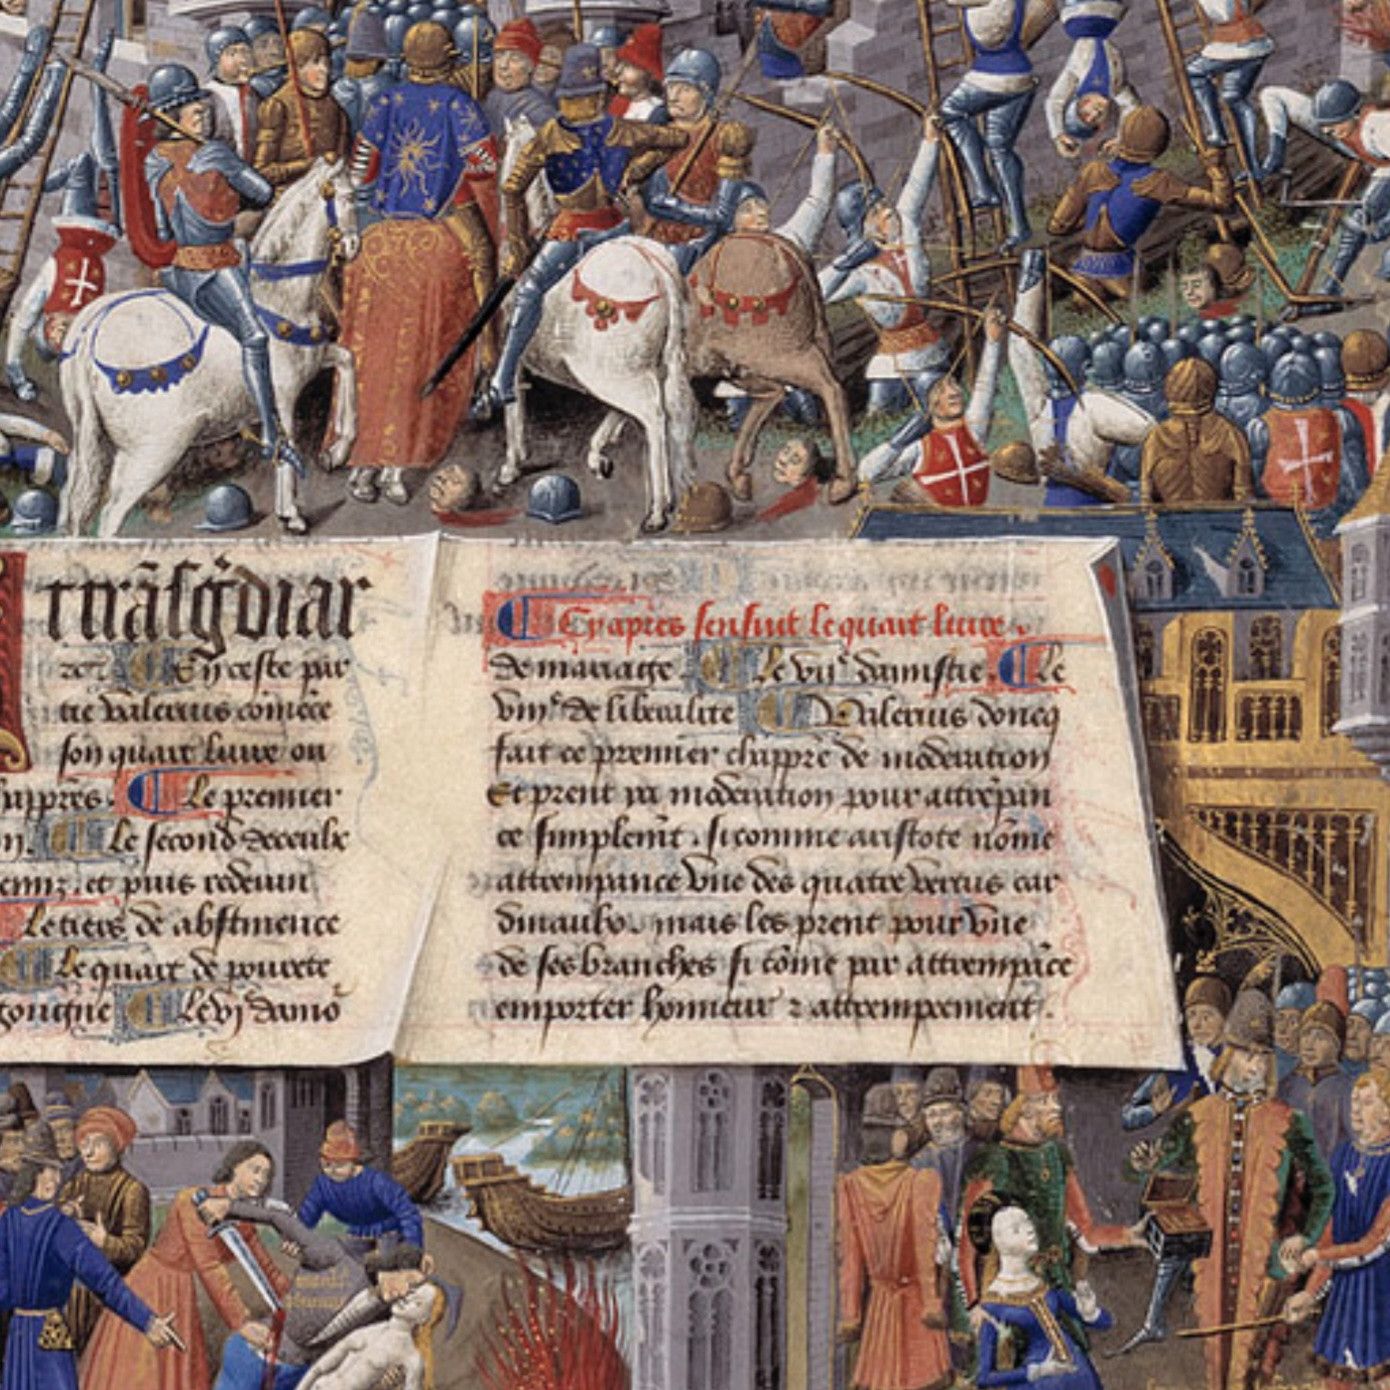 trãsgdiar
En ceste par
tie valerius cõmẽce
son quart livre ou
chappres. Le premier
Le second de ceulx
et puis redevin
Le tiers de abstinence
Le quart de povrete
Le vj d'amo
Cy apres sensuit le quart livre.
de mariage. Le viie damistie. Le
viiie de liberalite Valerius doncq
fait ce premier chappre de moderation
Et prent pr moderation pour attrẽpan
ce simplemt. si comme aristote nõme
attrempance vne des quatre vertus car
mais les prent pour vne
de ses branches si cõme par attrempãce
emporter honneur attrempement.